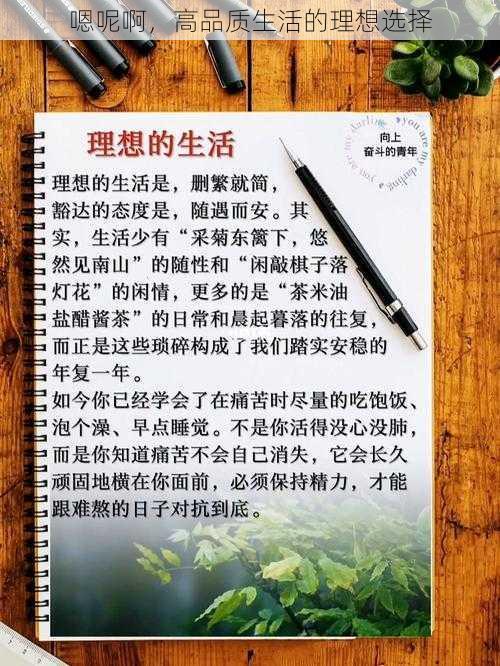 嗯呢啊，高品质生活的理想选择
理想的生活
向上
奋斗的青年
you are my darling you are my darling
理想的生活是，删繁就简，
豁达的态度是，随遇而安。其
实，生活少有“采菊东篱下，悠
然见南山”的随性和“闲敲棋子落
灯花”的闲情，更多的是“茶米油
盐醋酱茶”的日常和晨起暮落的往复，
而正是这些琐碎构成了我们踏实安稳的
年复一年。
如今你已经学会了在痛苦时尽量的吃饱饭、
泡个澡、早点睡觉。不是你活得没心没肺，
而是你知道痛苦不会自己消失，它会长久
顽固地横在你面前，必须保持精力，才能
跟难熬的日子对抗到底。